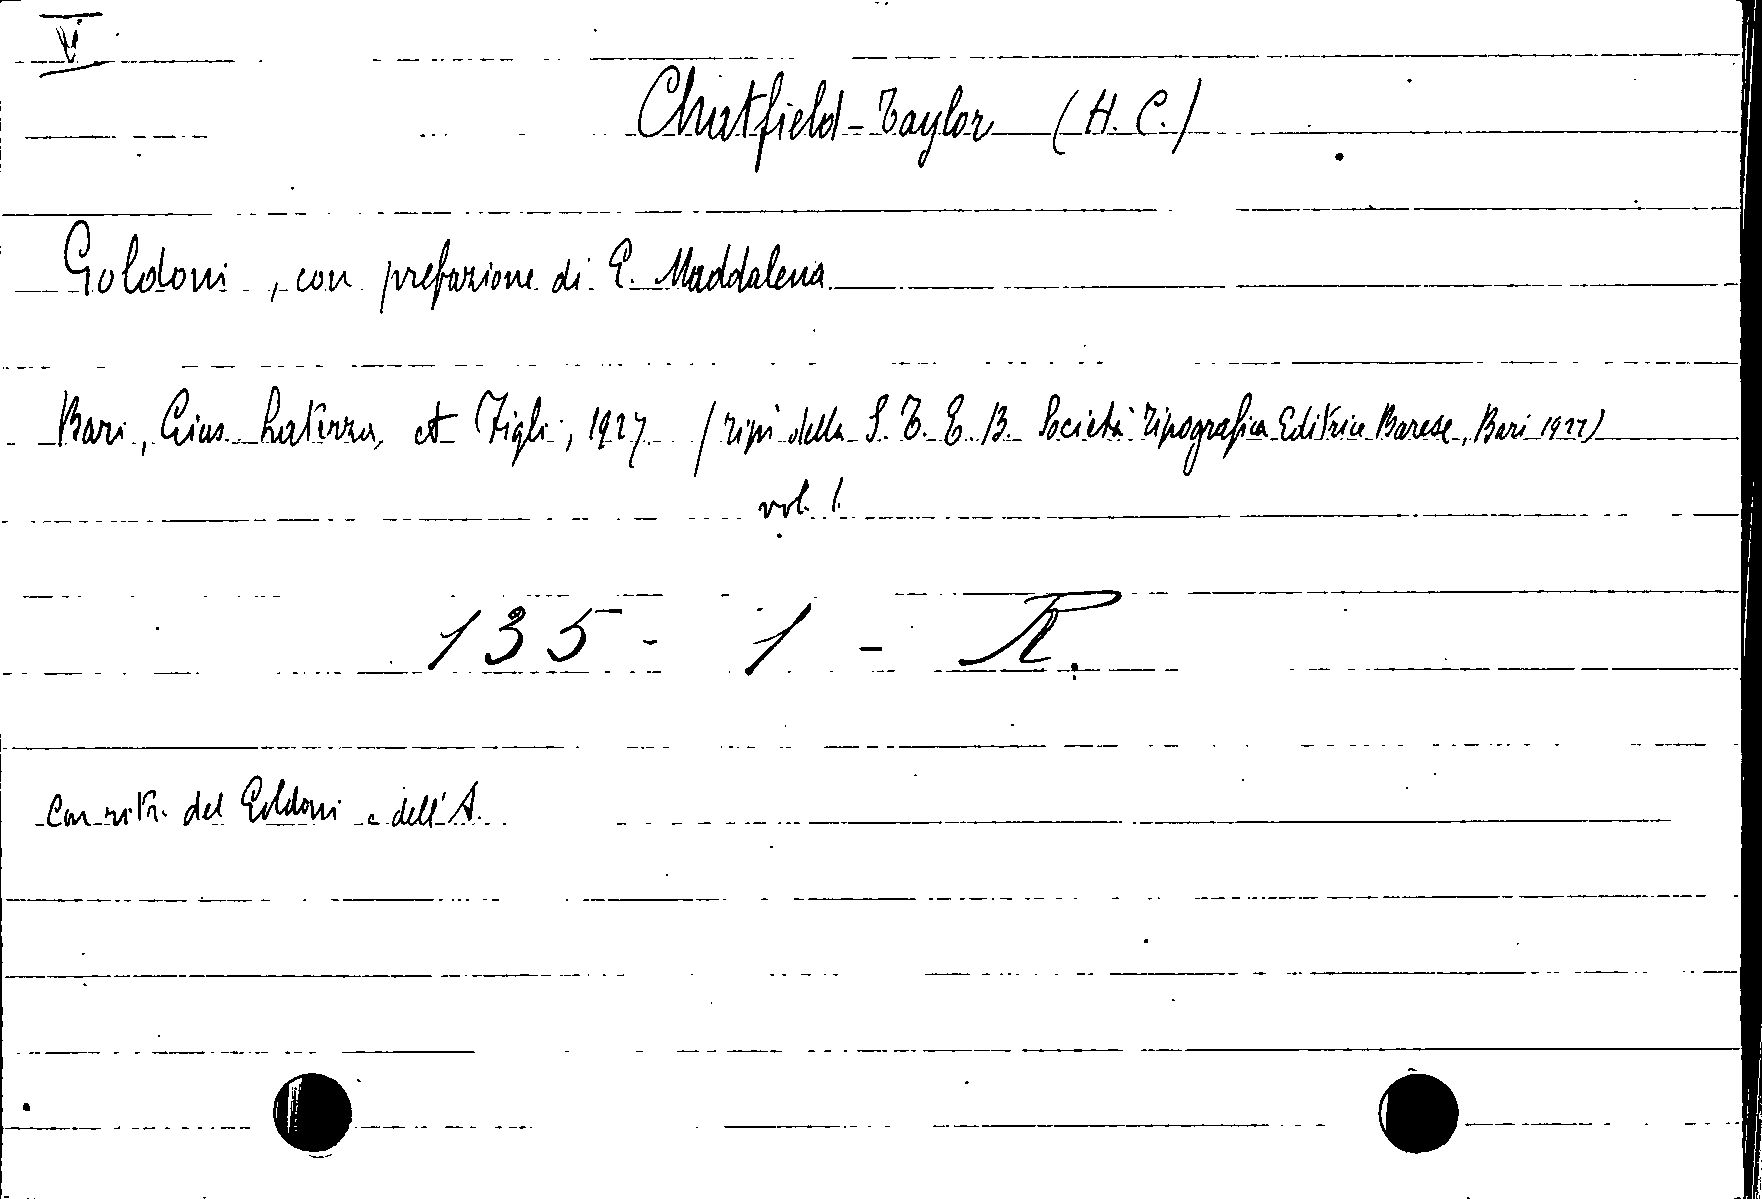 V
Chatfield-Taylor (H. C.)
Goldoni, con prefazione di E. Maddalena
Bari, Gius. Laterza, et Figli, 1927 (Tipi della S. T. E. B. Società Tipografica Editrice Barese, Bari 1927)
vol. 1.
135 - 1 - R.
Con ritr. del Goldoni e dell'A.